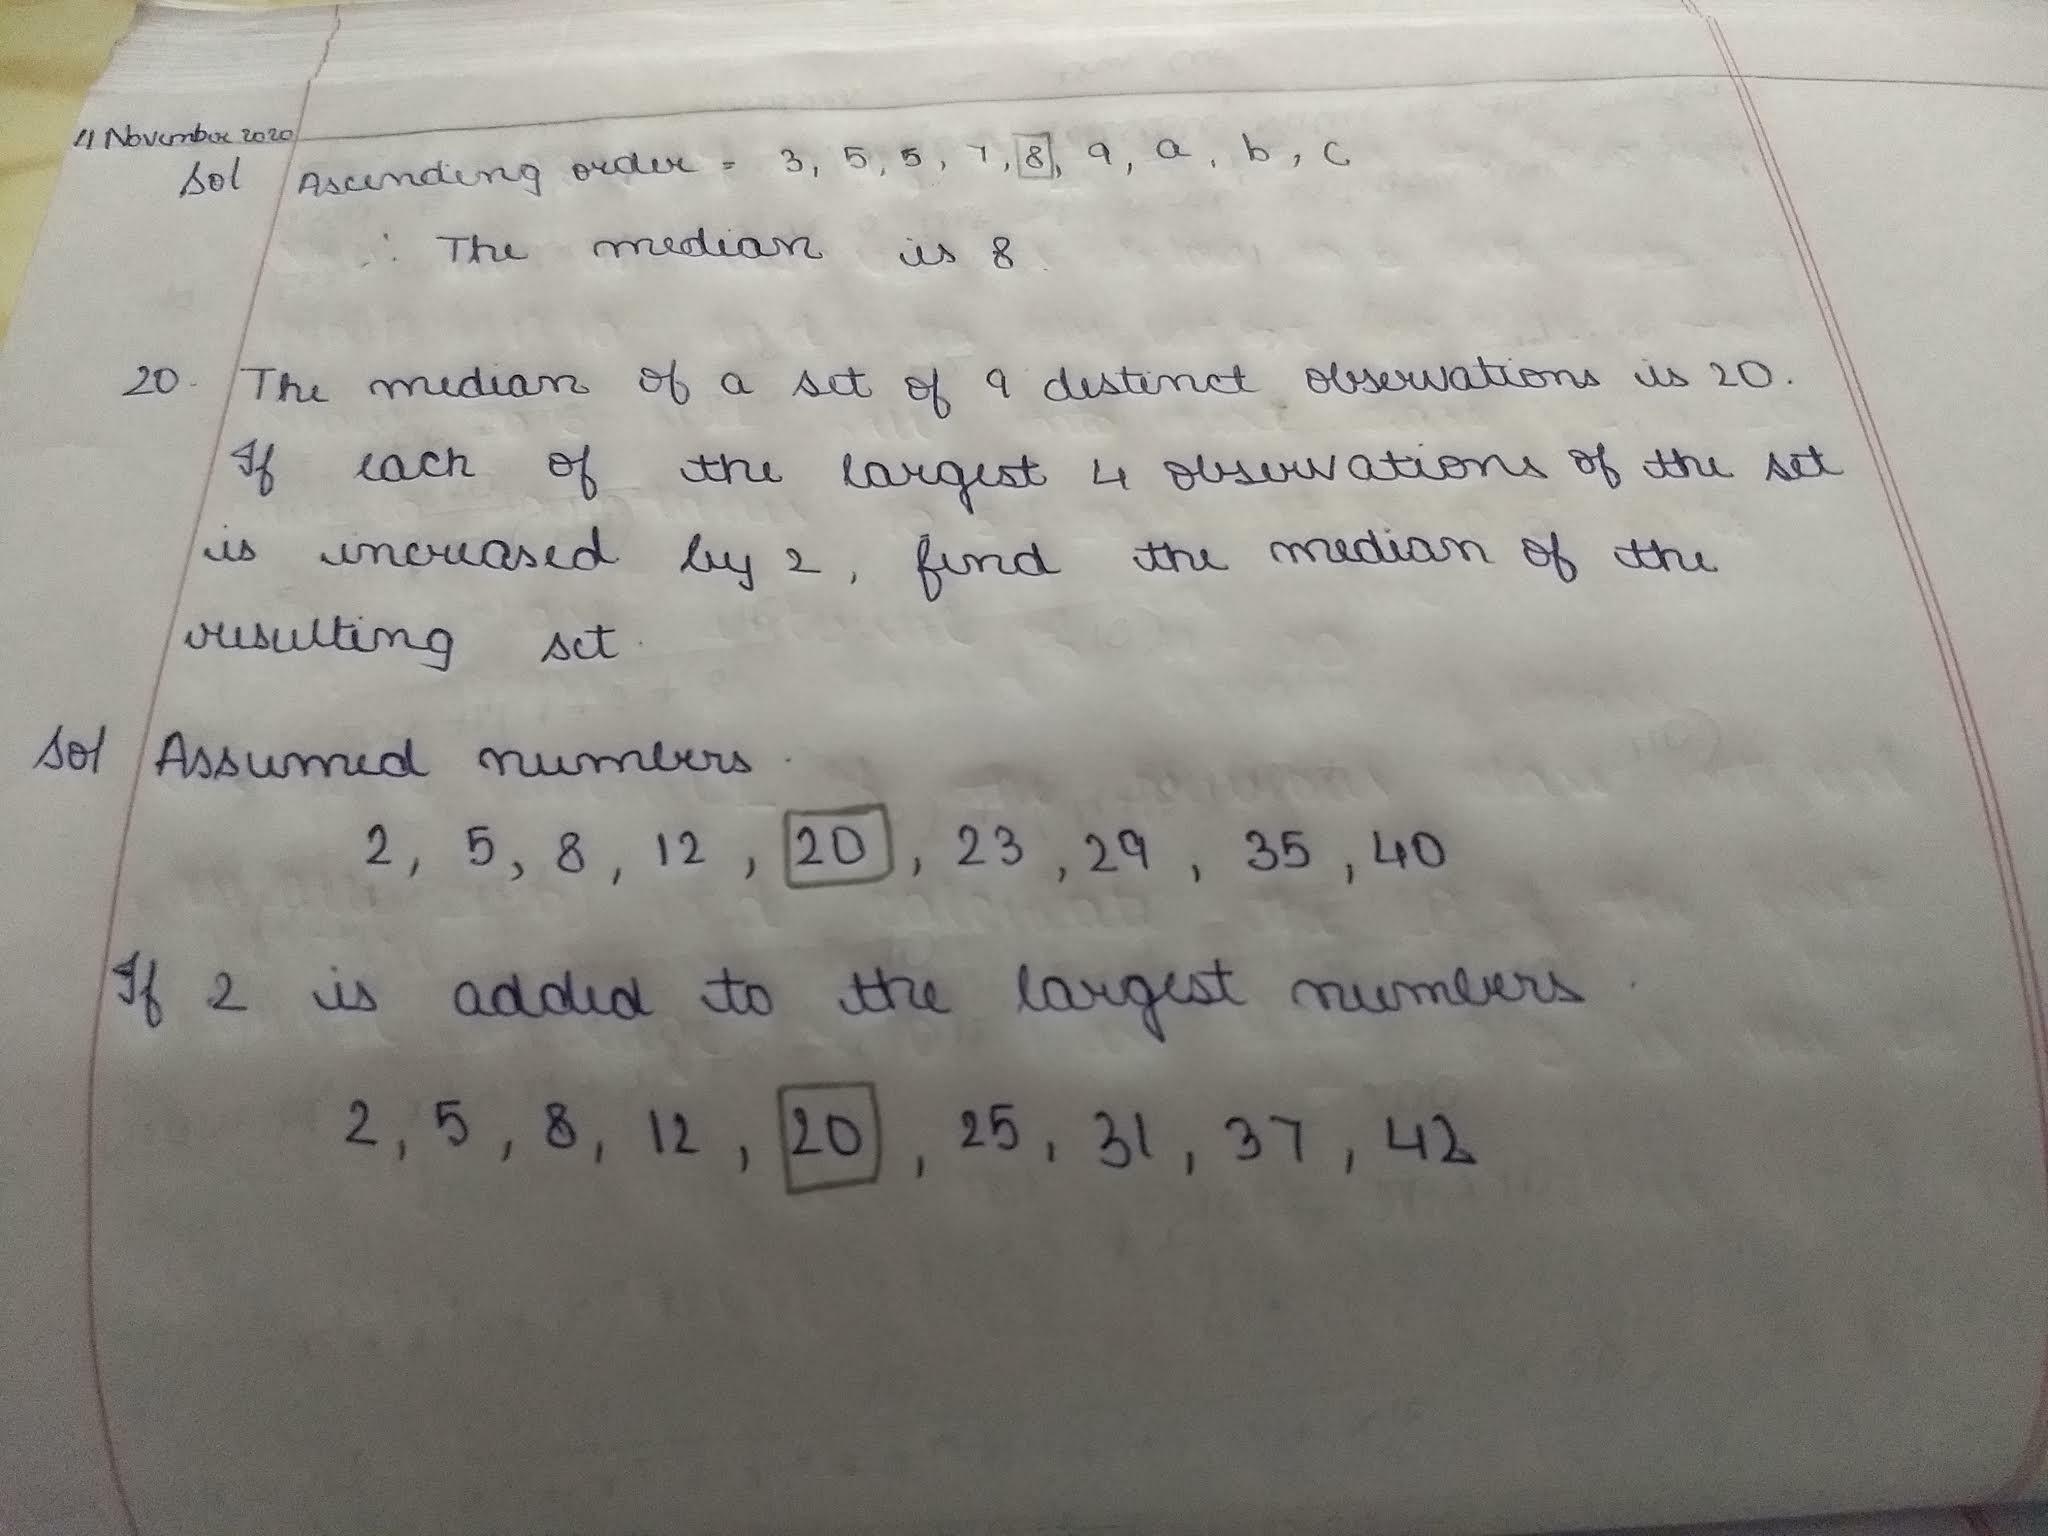 11 November 2020
Sol Ascending order = 3, 5, 5, 7, 8, 9, a, b, c
∴ The median is 8
20. The median of a set of 9 distinct observations is 20.
If each of the largest 4 observations of the set
is increased by 2, find the median of the
resulting set.
Sol Assumed numbers.
2, 5, 8, 12, 20, 23, 29, 35, 40
If 2 is added to the largest numbers.
2, 5, 8, 12, 20, 25, 31, 37, 42